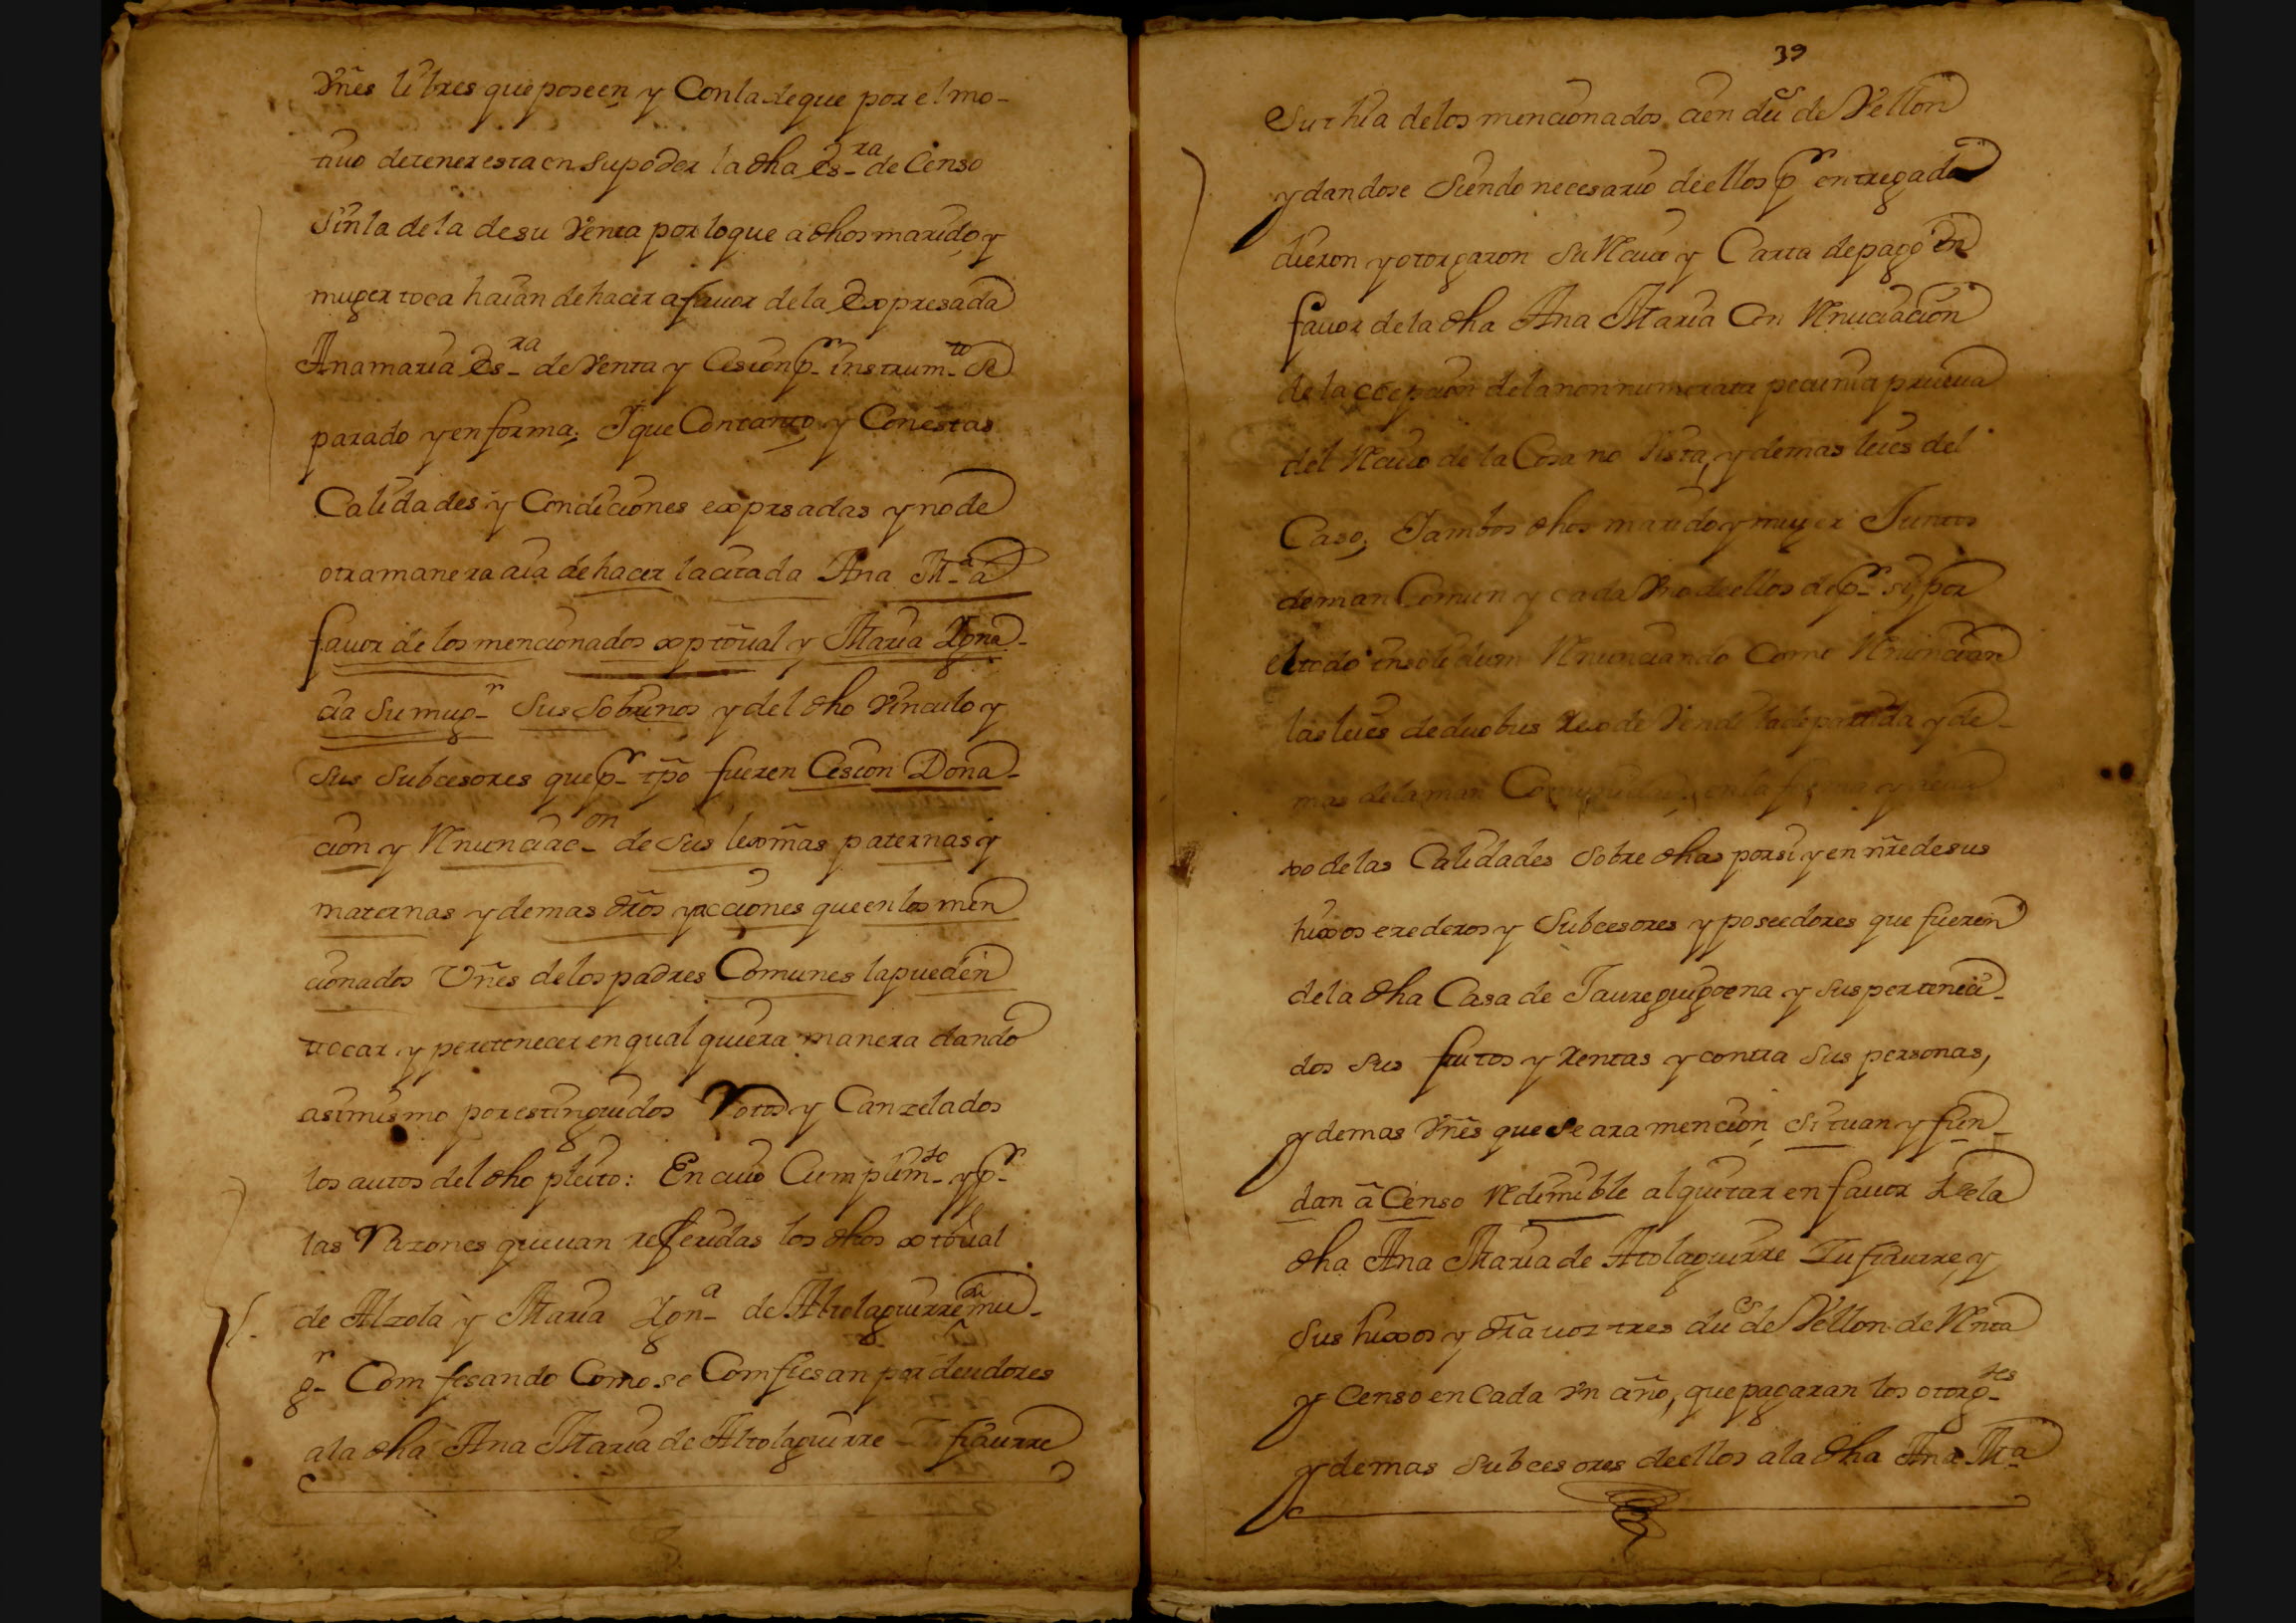 Vñes libres que poseen y Con la de que por el mo-
tiuo de tener esta en su poder la dha es-ra de Censo
sin la de la de su Venta por lo que a dhos marido y
muger toca haian de hacer a fauor de la Expresada
Ana maria Es-ra de Venta y Cesion p-r instrum-to se
parado y en forma; Y que Con tanto y Con estas
Calidades y Condiciones exprsadas y no de
otra manera aia de hacer la citada Ana M-a a
fauor de los mencionados xptoũal y Maria Ygna-
cia su mug-r sus sobrinos y del dho Vinculo y
sus subcesores que p-r tp̃o fueren Cesion Dona-
cion y Rnunciac-on de sus lexm̃as paternas y
maternas y demas dr̃os y acciones que en los men
cionados Vñes de los padres Comunes la pueden
tocar y peretenecer en qual quiera manera dando
asimismo por estinguidos Rotos y Canzelados
los autos del dho pleito: En cuio Cumplim-to y p-r
las Razones que uan referidas los dhos xptoũal
de Alzola y Maria Ygn-a de Altolaguirre su mu-
g-r Comfesando Como se Comfiesan por deudores
a la dha Ana Maria de Altolaguirre Yufiaurre
39
Su thia de los mencionados cien du-s de Vellon
y dandose siendo necesario de ellos p-r entregados
dieron y otorgaron su Rciuo y Carta de pago en
fauor de la dha Ana Maria Con Rnuciacion
de la ecepcion de la non numerata pecunia prueua
del Rciuo de la Cosa no Vista, y demas leies del
Caso; Y ambos dhos marido y muger Juntos
de man Comun y cada Vno de ellos de p-r si, y por
el todo insolidum Rnunciando Como Rnuncian
las leies de duobus Rex de Vendi la de partida y de-
mas de la man Comunidad en la forma y deua
xo de las Calidades sobre dhas por si y en nr̃e de sus
hixos erederos y Subcesores y poseedores que fueren
de la dha Casa de Jaureguigoena y sus perteneci-
dos sus frutos y Rentas y contra sus personas,
y demas Vñes que se ara mencion, situan y fun-
dan ã Censo Rdimible al quitar en fauor de la
dha Ana Maria de Atolaguirre Yufiaurre y
sus hixos y dr̃a uoz tres du-s de Vellon de Rnta
y Censo en cada Vn año, que pagaran los otorg-tes
y demas Subcesores de ellos a la dha Ana M-a